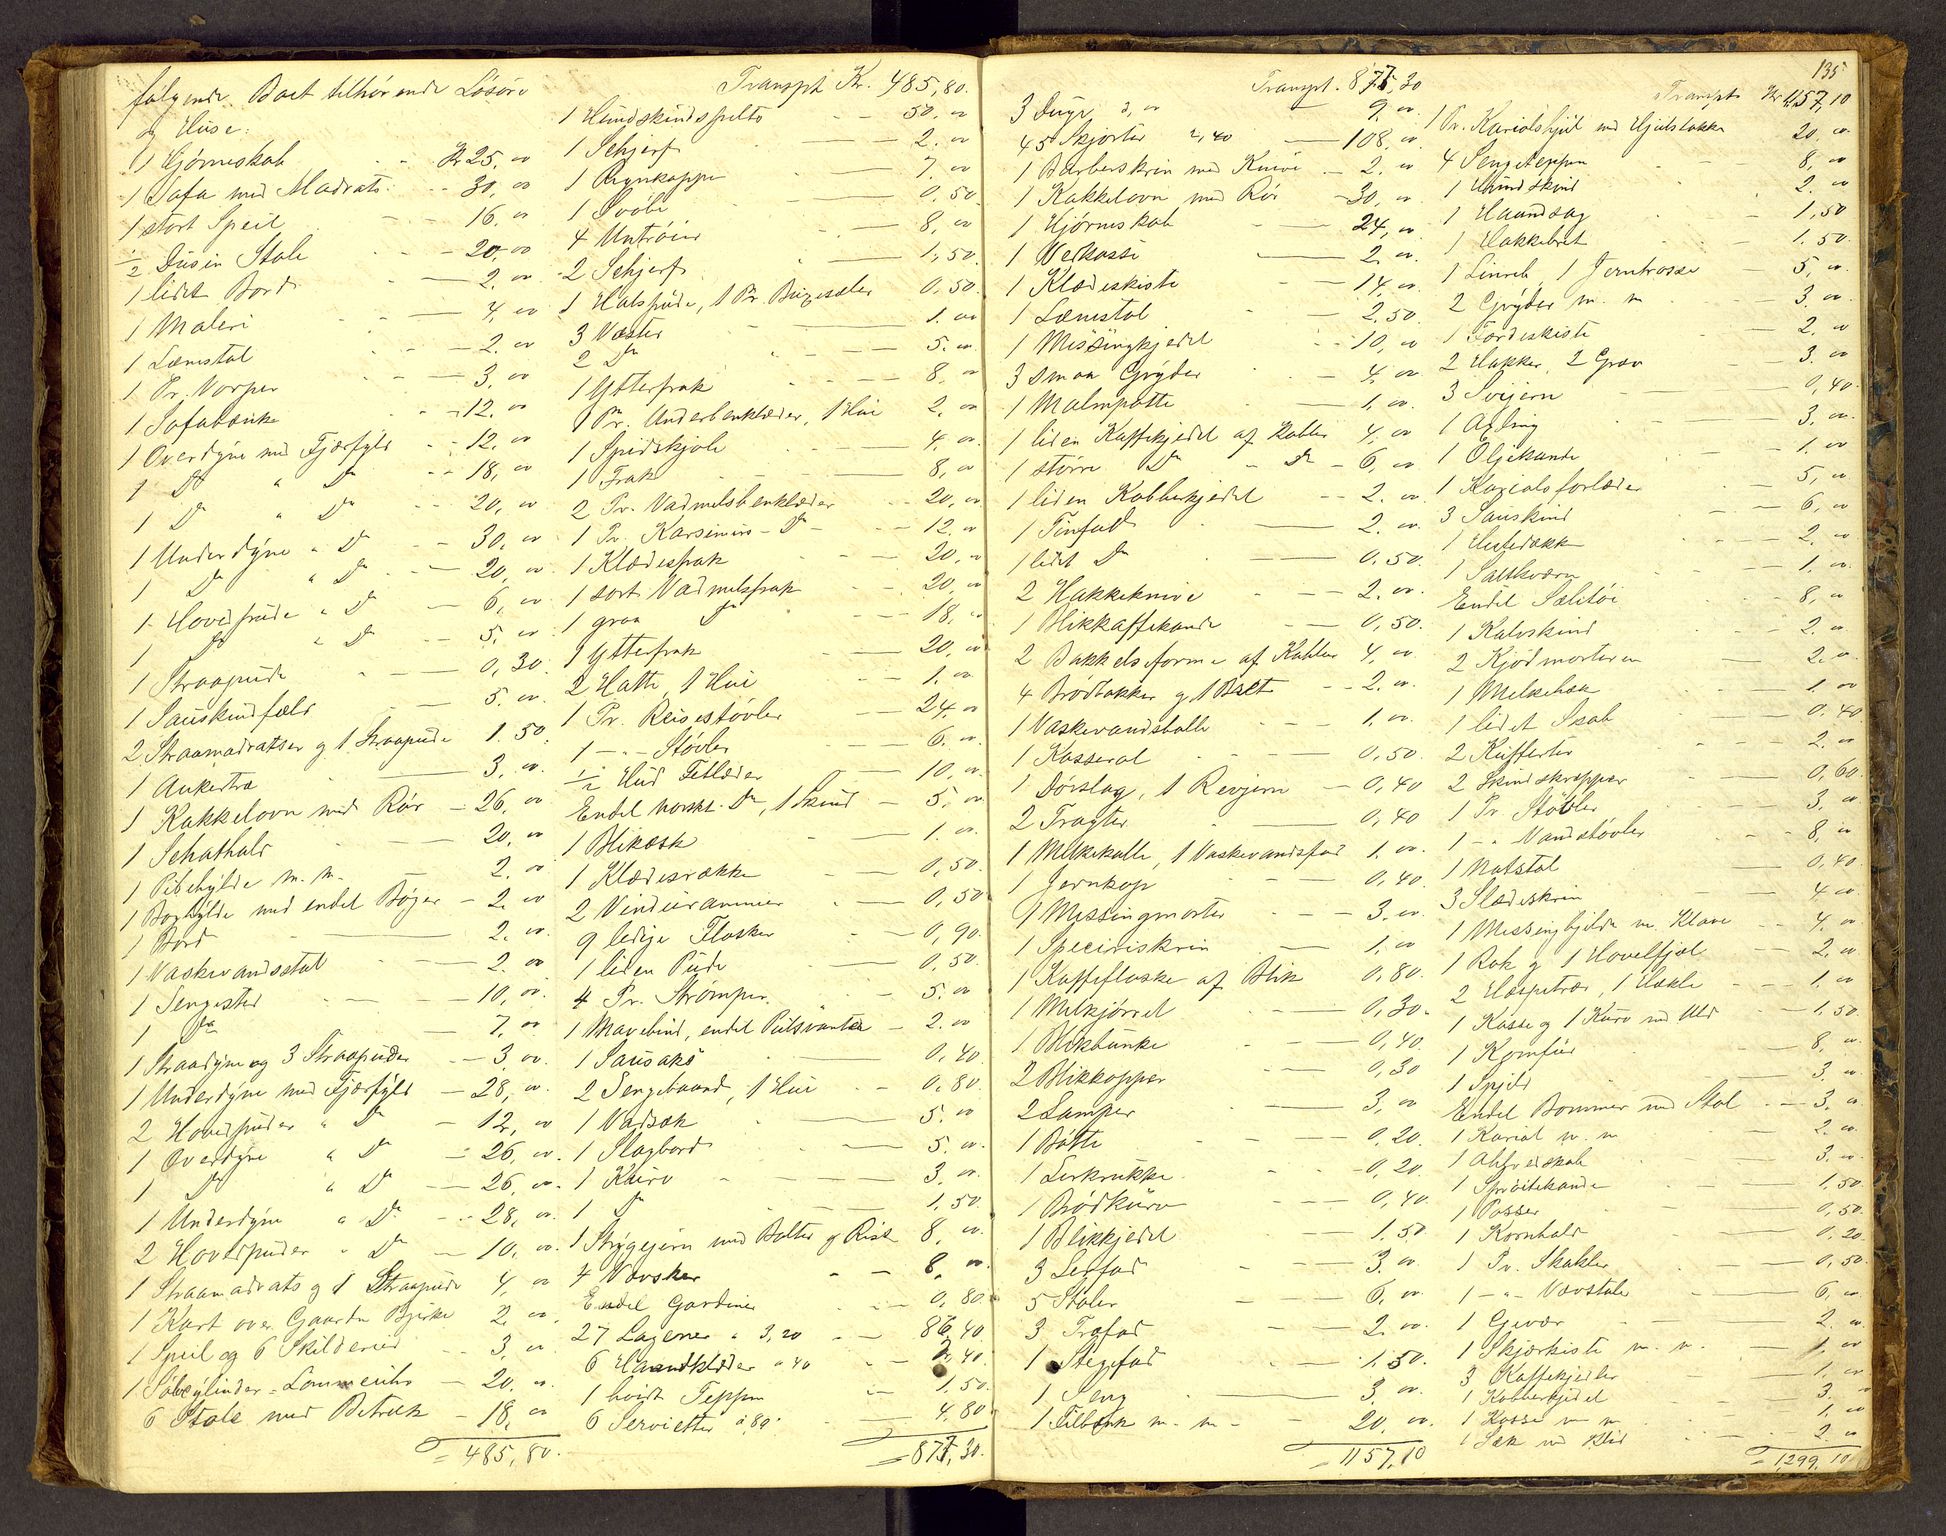 følgende Boet tilhørende Løsøre
og Huse:
1 Hjørneskab Kr 25, 00
1 Sofa med Madrats 30, 00
1 stort Speil 16, 00
1/2 Dusin Stole 20, 00
1 lidet Bord 2, 00
1 Maleri 4, 00
1 Lænestol 2, 00
1 Pr. Vorper 3, 00
1 Sofabænk 12, 00
1 Overdyne med Fjærfyld 12, 00
1 Do " Do 18, 00
1 Do " Do 20, 00
1 Underdyne " Do 30, 00
1 Do " Do 20, 00
1 Hovedpude " Do 6, 00
1 Do " Do 5, 00
1 Straapude 0, 30
1 Sauskindfæld 5, 00
2 Straamadratser og 1 Straapude 1. 50
1 Ankertræ 3, 00
1 Kakkelovn med Rør 26, 00
1 Schathald 20, 00
1 Pibehylde m. m. 2, 00
1 Boghylde med endel Bøger 2, 00
1 Bord 2, 00
1 Vaskevandsstol 2, 00
1 Sengested 10, 00
1 Do 7, 00
1 Straadyne og 3 Straapuder 3, 00
1 Underdyne med Fjærfyld 28, 00
2 Hovedpuder " Do 12, 00
1 Overdyne " Do 26, 00
1 Do " Do 26, 00
1 Underdyne " Do 28, 00
2 Hovedpuder " Do 10, 00
1 Straamadrats og 1 Straapude 4, 00
1 Kart over Gaarden Bjerke 2, 00
1 Speil og 6 Skilderier 3, 00
1 Sølvcylinder-Lommeuhr 20, 00
6 Stole med Betræk 18, 00
= 485, 80.
Transpt Kr. 485, 80.
1 Hundskindspelts 50, 00
1 Schjerf 2, 00
1 Reynkappe 7, 00
1 Svøbe 0, 50
4 Untrøier 8, 00
2 Schjerf 1, 50
1 Halspude, 1 Pr. Buxesæler 0, 50
3 Væster 1, 00
2 Do 5, 00
1 Ytterfrak 8, 00
1 Pr. Underbenklæder, 1 Hue 2, 00
1 Spidskjole 4, 00
1 Frak 8, 00
2 Pr. Vadmelsbenklæder 20, 00
1 Pr. Karsimirs Do 12, 00
1 Klædesfrak 20, 00
1 sort Vadmelsfrak 20, 00
1 graa Do 18, 00
1 Ytterfrak 20, 00
2 Hatte, 1 Hue 1, 00
1 Pr. Reisestøvler 24, 00
1 - " - Støvler 6, 00
1/2 Hud Fetlæder 10, 00
Endel norskt Do, 1 Skind 5, 00
1 Blikæsk 1, 00
1 Klædesrække 0, 50
2 Vinduerammer 0, 50
9 ledige Flasker 0, 90
1 liden Pude 0, 50
4 Pr. Strømper 5, 00
1 Mavebind, endel Pulsvanter 2, 00
1 Sausaks 0, 40
2 Sengebaand, 1 Hue 0, 80
1 Vadsæk 5, 00
1 Slagbord 5, 00
1 Kurv 3, 00
1 Do 1, 50
1 Strygejern med Bolter og Rist 8, 00
4 Vævsker 8, 00
Endel Gardiner 0, 80
27 Lagener à 3, 20 86, 40
6 Haandklæder à 40 2, 40
1 hvidt Teppe 1, 50
6 Servietter à, 80 4, 80
= 877, 30.
135
Transpt. 877, 30
3 Duge 3, 00 9, 00
45 Skjorter 2, 40 108, 00
1 Barberskrin med Knive 2, 00
1 Kakkelovn med Rør 30, 00
1 Hjørneskab 24, 00
1 Vedkasse 2, 00
1 Klædeskiste 14, 00
1 Lænestol 2, 50
1 Missingkjedel 10, 00
3 smaa Gryder 4, 00
1 Malmpotte 1, 00
1 liden Kaffekjedel af Kobber 4, 00
1 større Do " Do 6, 00
1 liden Kobberkjedel 2, 00
1 Tinfad 2, 00
1 lidet Do 0, 50
2 Hakkeknive 2, 00
1 Blikkaffekande 0, 50
2 Bakkelsforme af Kobber 4, 00
4 Brødbakker og 1 Bret 2, 00
1 Vaskevandsballe 1, 00
1 Kasserol 0, 50
1 Dørslag, 1 Revjern 0, 40
2 Tragter 0, 40
1 Melkekolle, 1 Vaskevandsfad 1, 00
1 Jernkop 0, 40
1 Messingmorter 3, 00
1 Specieskrin 1, 00
1 Kaffeflaske af Blik 0, 80
1 Melkjørrel 0, 30
1 Blikbunke 0, 40
2 Blikkopper 0, 30
2 Lamper 3, 00
1 Bøtte 0, 20
1 Lerkrukke 0, 20
1 Brødkurv 0, 40
1 Blikkjedel 1, 50
3 Lerfad 3, 00
5 Stoler 6, 00
3 Trefad 2, 00
1 Stegefad 1, 50
1 Seng 3, 00
1 Filbænk m. m. 20, 00
= 1157, 10
Transpt Kr 1157, 10
1 Pr. Kariolshjul med Hjulstokke 20, 00
4 Sengetepper 8, 00
1 Hundskind 2, 00
1 Haandsag 1, 50
1 Hakkebret 1, 50
1 Linreb, 1 Jerntrosse 5, 00
2 Gryder m. m 3, 00
1 Førdeskiste 2, 00
2 Hakker, 2 Grev 3, 00
3 Svijern 0, 40
1 Agling 3, 00
1 Oljekande 1, 00
1 Kariolsforlæder 5, 00
3 Sauskind 6, 00
1 Hestedække 2, 00
1 Saltkværn 1, 00
Endel Seletøi 8, 00
1 Kalvskind 2, 00
2 Kjødmortere 2, 00
1 Melkebøk 1, 00
1 lidet Skab 0, 40
2 Kufferter 2, 00
2 Skindskrepper 0, 60
1 Pr. Støvler 3, 00
1 - " Vandstøvler 8, 00
1 Natstol 0, 40
3 Slædeskrin 4, 00
1 Messingbjelde m. Klave 4, 00
1 Rok og 1 Hovelfjøl 2, 00
2 Haspetrær, 1 Hekle 1, 00
1 Kasse og 1 Kurv med Uld 1, 50
1 Komfur 8, 00
1 Spjeld 3, 00
Endel Bommer med Stol 3, 00
1 Kariol m. m 2, 00
1 Ahlverskab 3, 00
1 Sprøitekande 1, 50
1 Passer 0, 50
1 Kornhold 0, 20
1 Pr. Skakler 0, 50
1 - " - Vævstole 6, 00
1 Gevær 2, 00
1 Skjærkiste m. m. 1, 00
3 Kaffekjedler 1, 00
1 Kobberkjedel 3, 00
1 Kasse m m 1, 00
1 Sæk m Klid 2, 00
= 1,299, 10